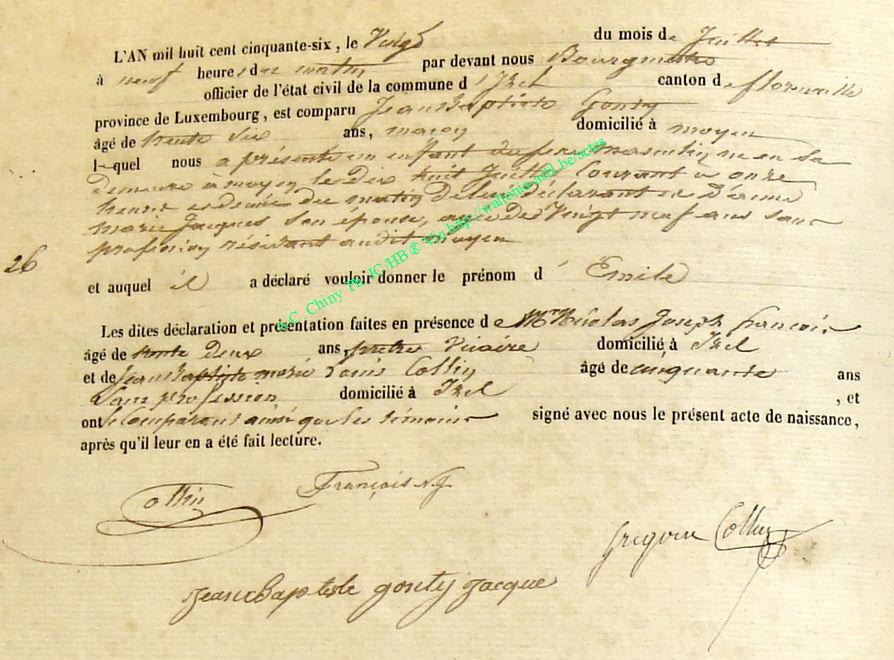 L'AN mil huit cent cinquante-six, le Vingt du mois de Juillet
à neuf heures du matin par devant nous Bourgmestre
officier de l'état civil de la commune d'Izel canton de florenville
province de Luxembourg, est comparu Jean Baptiste Gouty
âgé de trente six ans, maçon domicilié à moyen
lequel nous a présenté un enfant du sexe masculin né en sa
demeure à moyen le Dix huit Juillet Courant à onze
heures et demie du matin de lui déclarant et D'anne
marie Jacques son épouse, agée de Vingt neuf ans sans
profession résidant audit moyen
26
et auquel il a déclaré vouloir donner le prénom d'Emile
Les dites déclaration et présentation faites en présence de Mr Nicolas Joseph françois
âgé de trente deux ans, prêtre Vicaire domicilié à Izel
et de Jean Baptiste marie Louis Collin âgé de cinquante ans
Sans profession domicilié à Izel , et
ont le Comparant ainsi que les témoins signé avec nous le présent acte de naissance,
après qu'il leur en a été fait lecture.
Collin François N.J.
Gregoire Collin
Jean Baptiste gouty Jacque